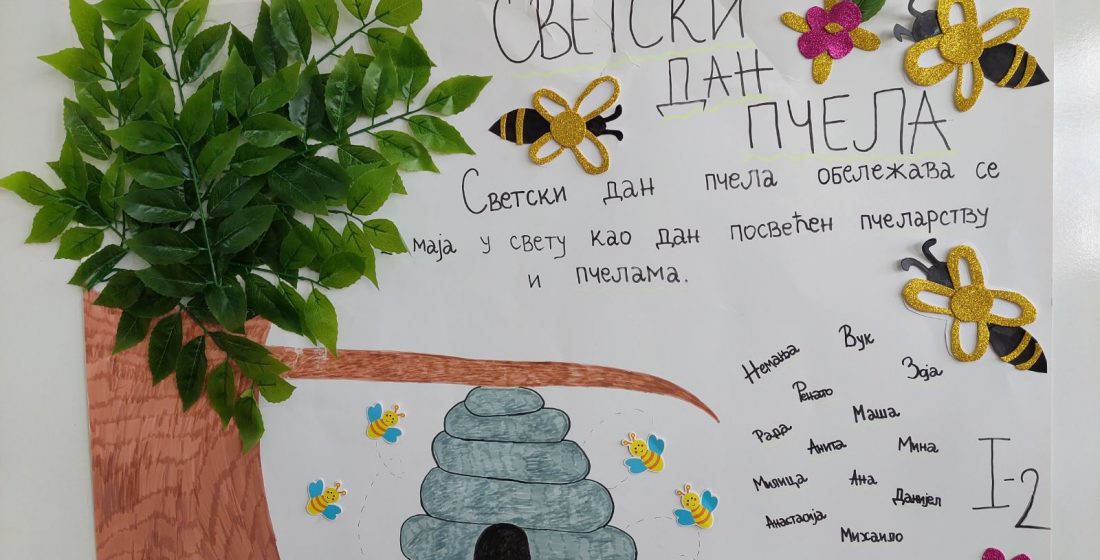 СВЕТСКИ
ДАН
ПЧЕЛА
Светски дан пчела обележава се
маја у свету као дан посвећен пчеларству
и пчелама.
Немања Вук
Ренато Зоја
Рада Маша
Анита Мина
Милица Ана
Данијел
Анастасија
Михаило
I-2